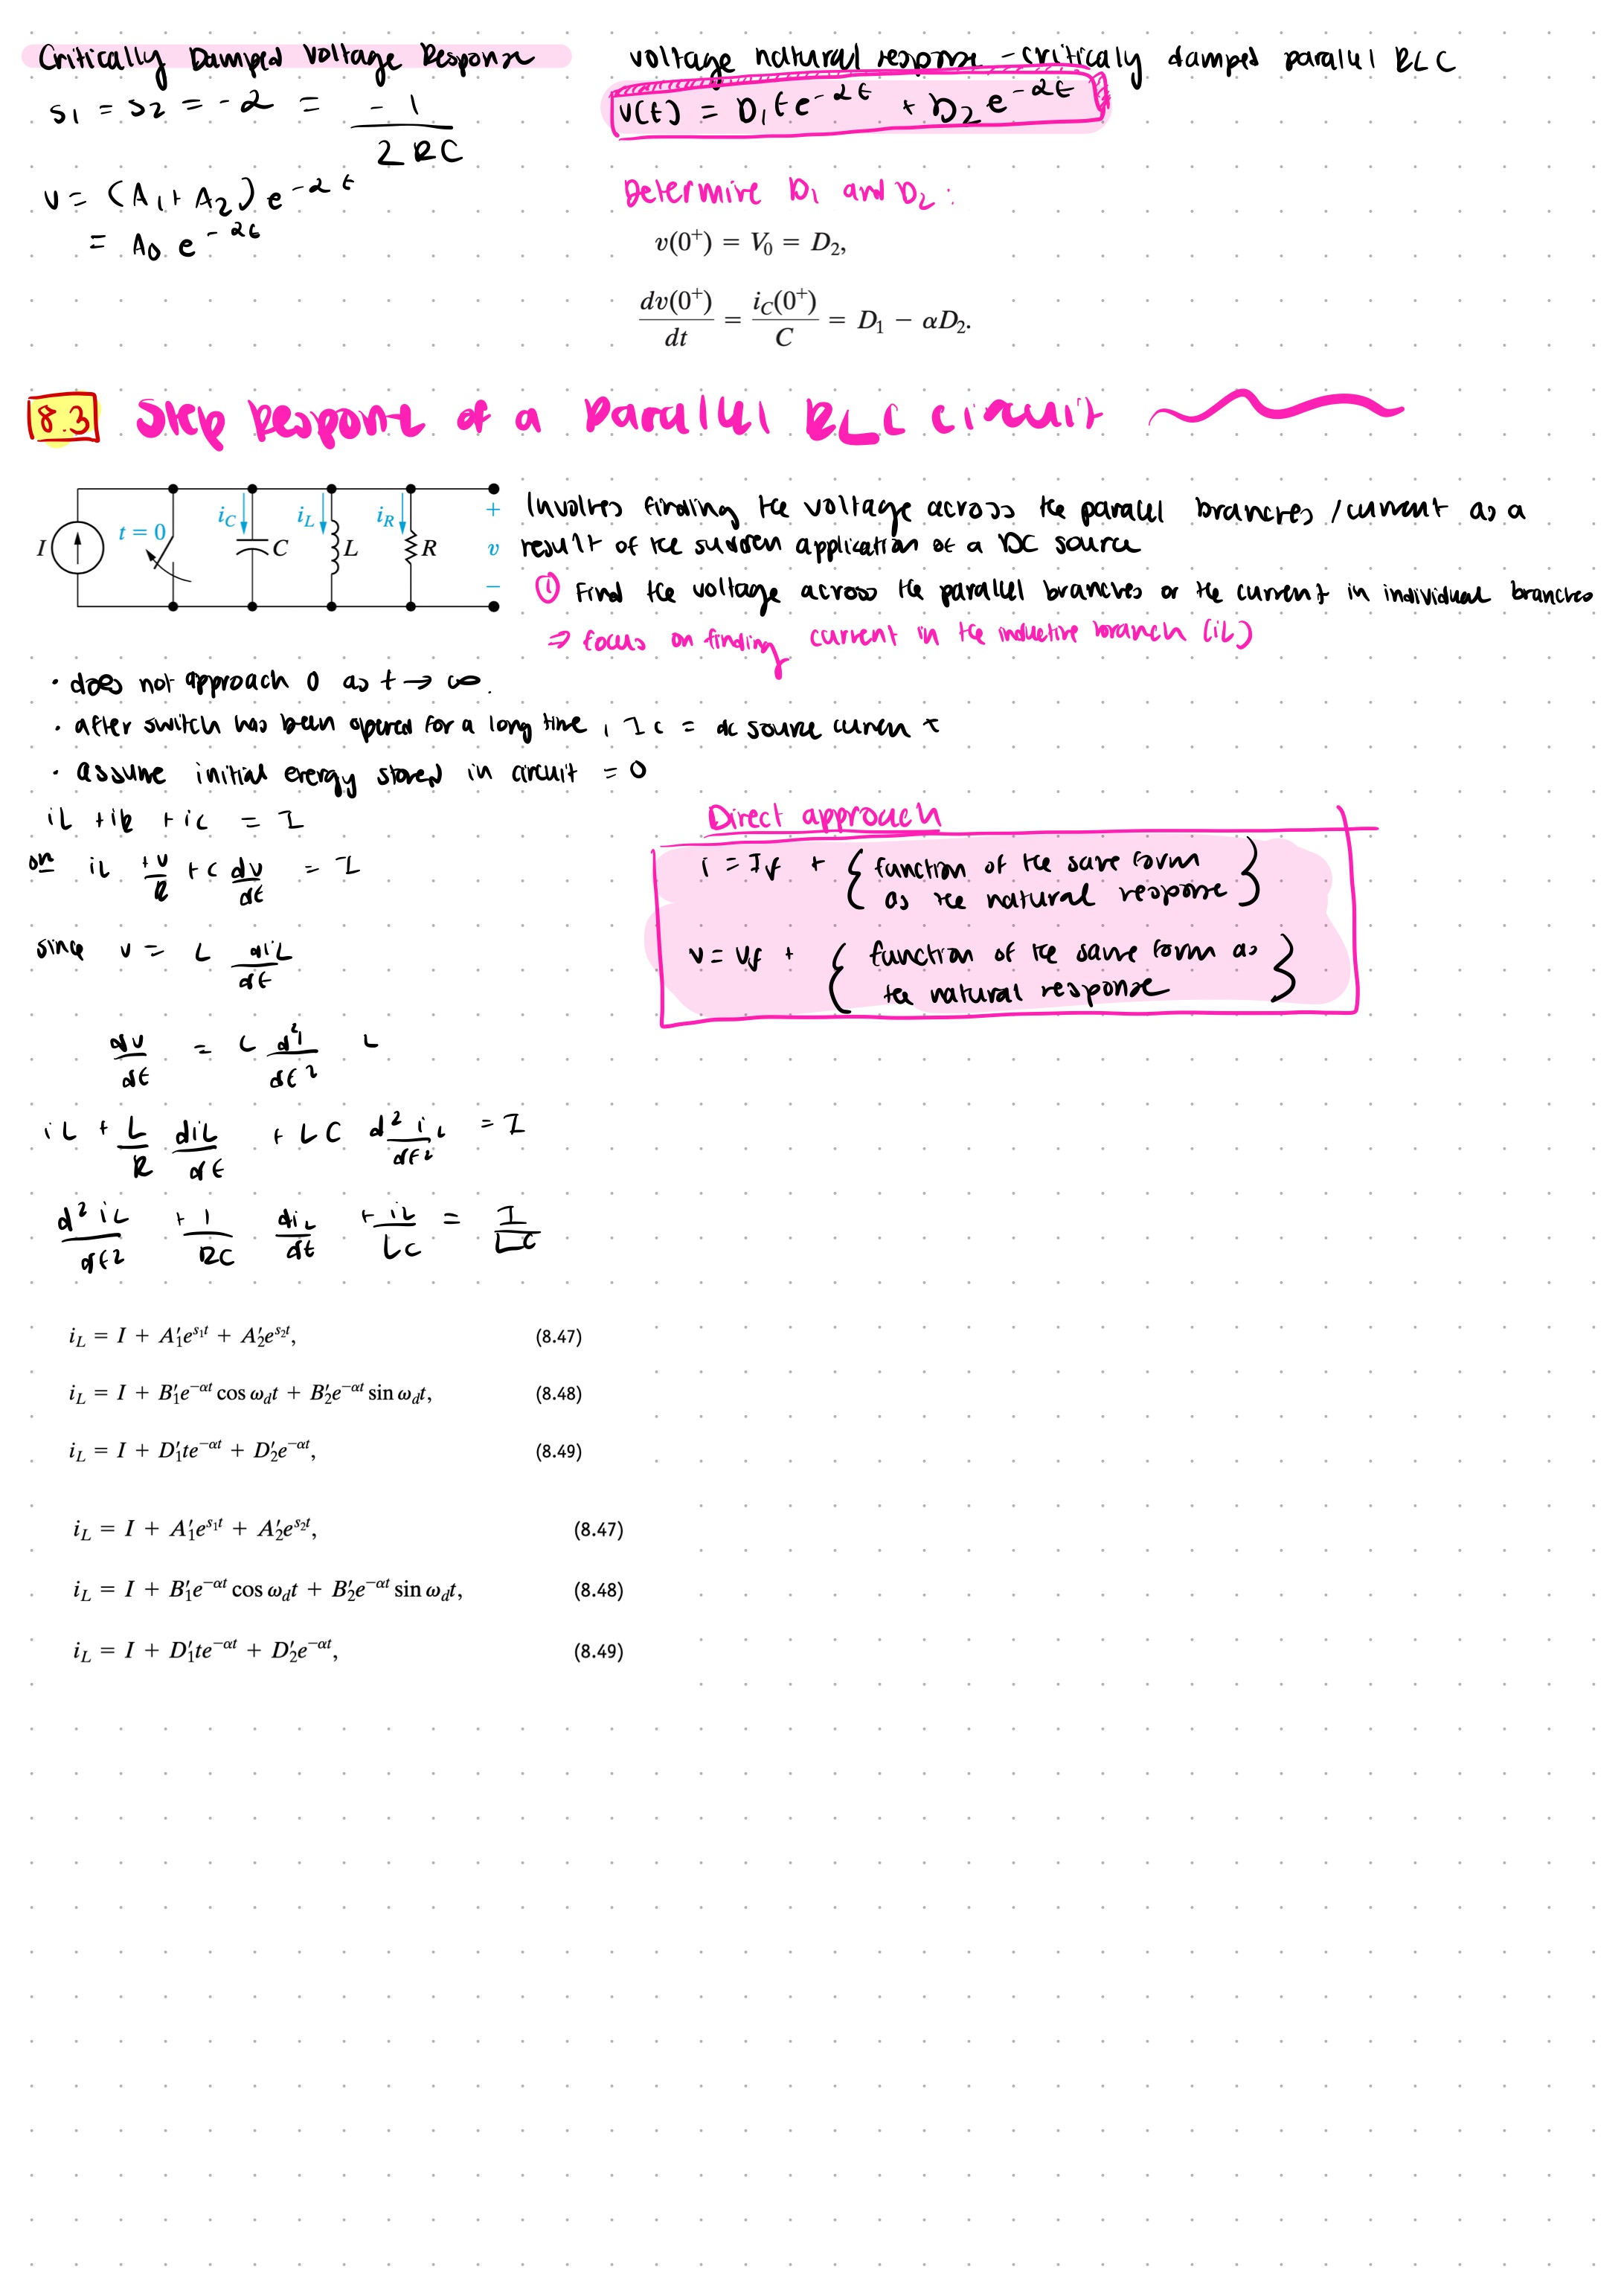 Critically Damped Voltage Response
s1 = s2 = -α = -1 / 2RC
v = (A1 + A2) e^-αt
= A0 e^-αt
voltage natural response - criticaly damped parallel RLC
v(t) = D1 t e^-αt + D2 e^-αt
Determire D1 and D2 :
v(0⁺) = V0 = D2,
dv(0⁺)/dt = iC(0⁺)/C = D1 − αD2.
8.3 Step Response of a Parallel RLC circuit
I t = 0 iC C iL L iR R + v −
Involves finding the voltage across the parallel branches / current as a
result of the sudden application of a DC source
① Find the voltage across the parallel branches or the current in individual branches
⇒ focus on finding current in the inductive branch (iL)
· does not approach 0 as t → ∞.
· after switch has been opened for a long time, IL = dc source curen t
· assume initial energy stored in circuit = 0
iL + iR + iC = I
or iL + v/R + C dv/dt = I
since v = L diL/dt
dv/dt = L d²i/dt² L
iL + L/R diL/dt + LC d²iL/dt² = I
d²iL/dt² + 1/RC diL/dt + iL/LC = I/LC
Direct approach
i = If + { function of the same form
as the natural response }
v = Vf + { function of the same form as
the natural response }
iL = I + A′1e^s1t + A′2e^s2t, (8.47)
iL = I + B′1e^−αt cos ωdt + B′2e^−αt sin ωdt, (8.48)
iL = I + D′1te^−αt + D′2e^−αt, (8.49)
iL = I + A′1e^s1t + A′2e^s2t, (8.47)
iL = I + B′1e^−αt cos ωdt + B′2e^−αt sin ωdt, (8.48)
iL = I + D′1te^−αt + D′2e^−αt, (8.49)